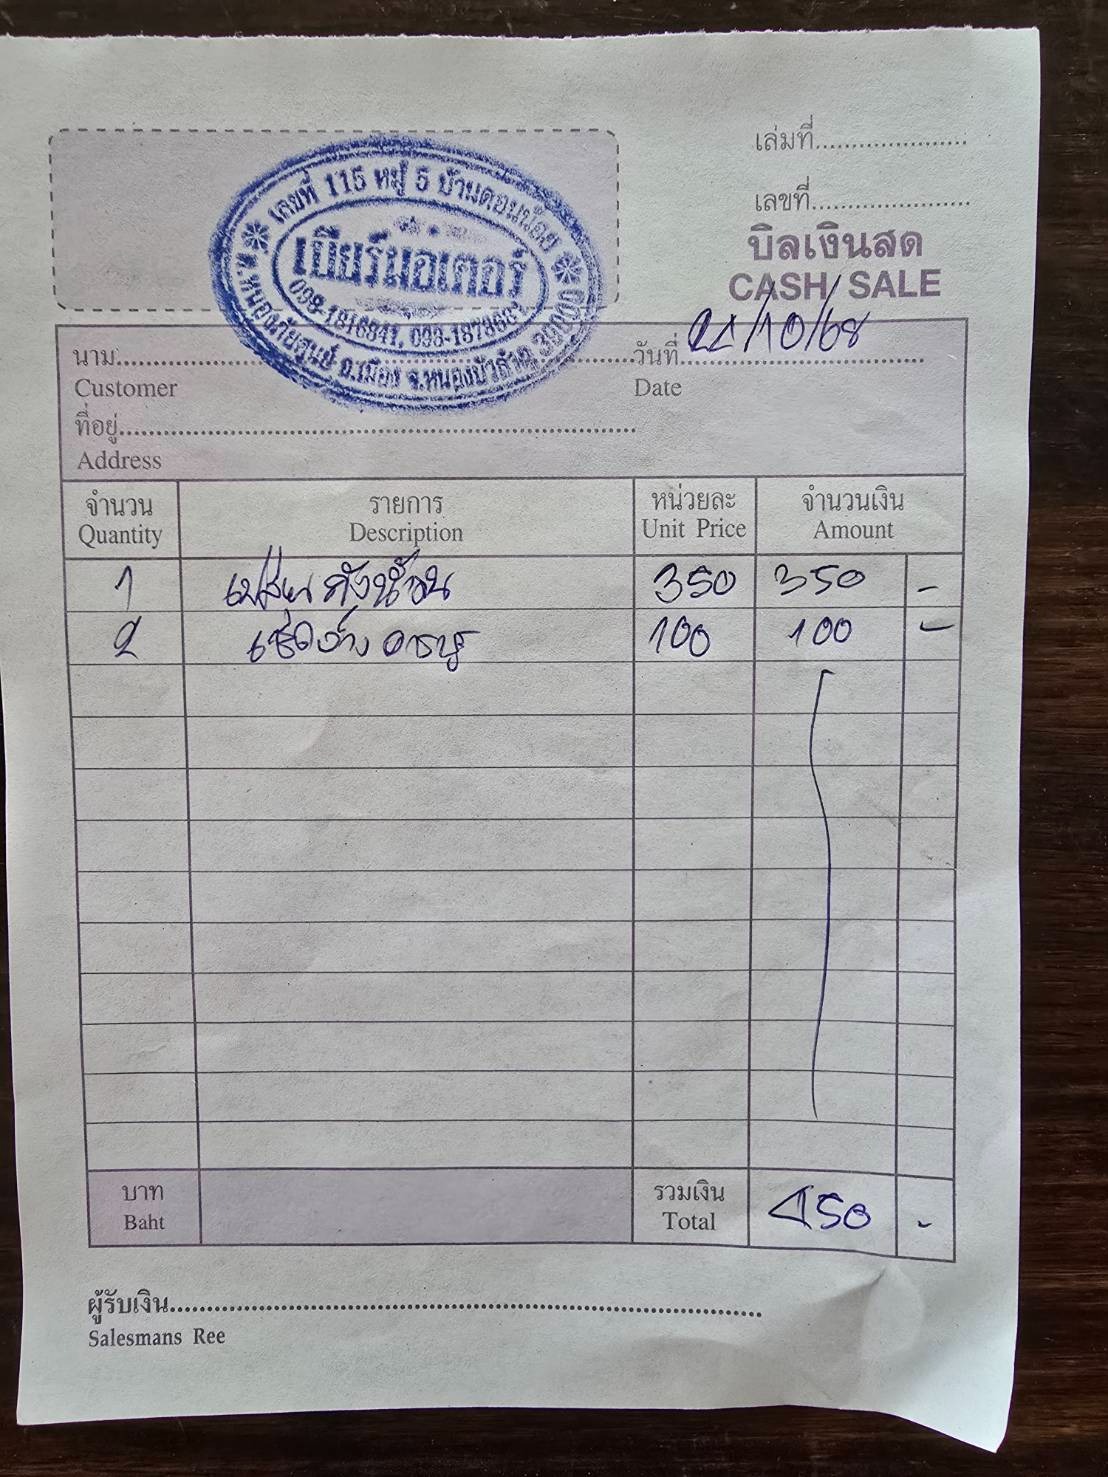 เล่มที่
เลขที่
บิลเงินสด
CASH SALE
เลขที่ 115 หมู่ 5 บ้านดอนน้อย
เบียร์มอเตอร์
098-1816841, 093-187
อ.เมือง จ.หนองบัวลำภู 39000
นาม
Customer
วันที่ 21/10/68
Date
ที่อยู่
Address
จำนวน รายการ หน่วยละ จำนวนเงิน
Quantity Description Unit Price Amount
1 350 350 -
2 100 100 -
บาท รวมเงิน 450 -
Baht Total
ผู้รับเงิน
Salesmans Ree